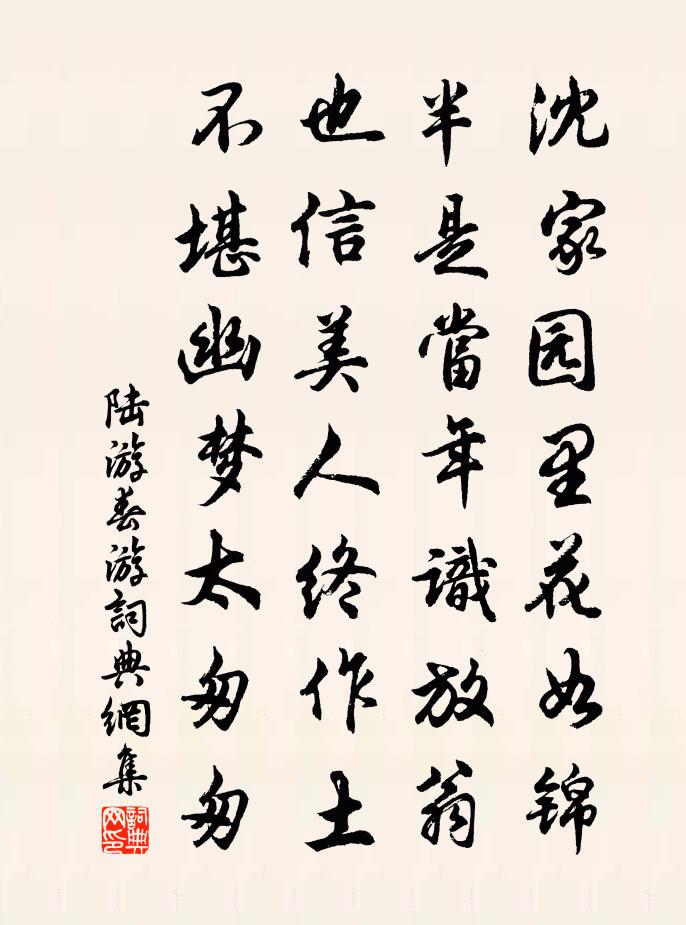 沈家园里花如锦
半是當年識放翁
也信美人终作土
不堪幽梦太匆匆
陆游春游詞典網集
詞典網印